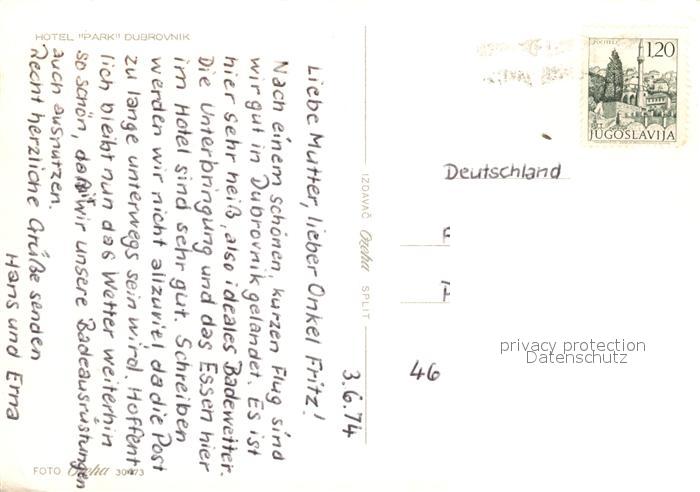 HOTEL "PARK" DUBROVNIK
3.6.74
Liebe Mutter, lieber Onkel Fritz!
Nach einem schönen, kurzen Flug sind
wir gut in Dubrovnik gelandet. Es ist
hier sehr heiß, also ideales Badewetter.
Die Unterbringung und das Essen hier
im Hotel sind sehr gut. Schreiben
werden wir nicht allzuviel da die Post
zu lange unterwegs sein wird. Hoffent
lich bleibt nun das Wetter weiterhin
so schön, daß wir unsere Badeausrüstungen
auch ausnutzen.
Recht herzliche Grüße senden
Hans und Erna
FOTO Ozeha
IZDAVAČ Ozeha SPLIT
1,20
JUGOSLAVIJA
Deutschland
46
privacy protection
Datenschutz